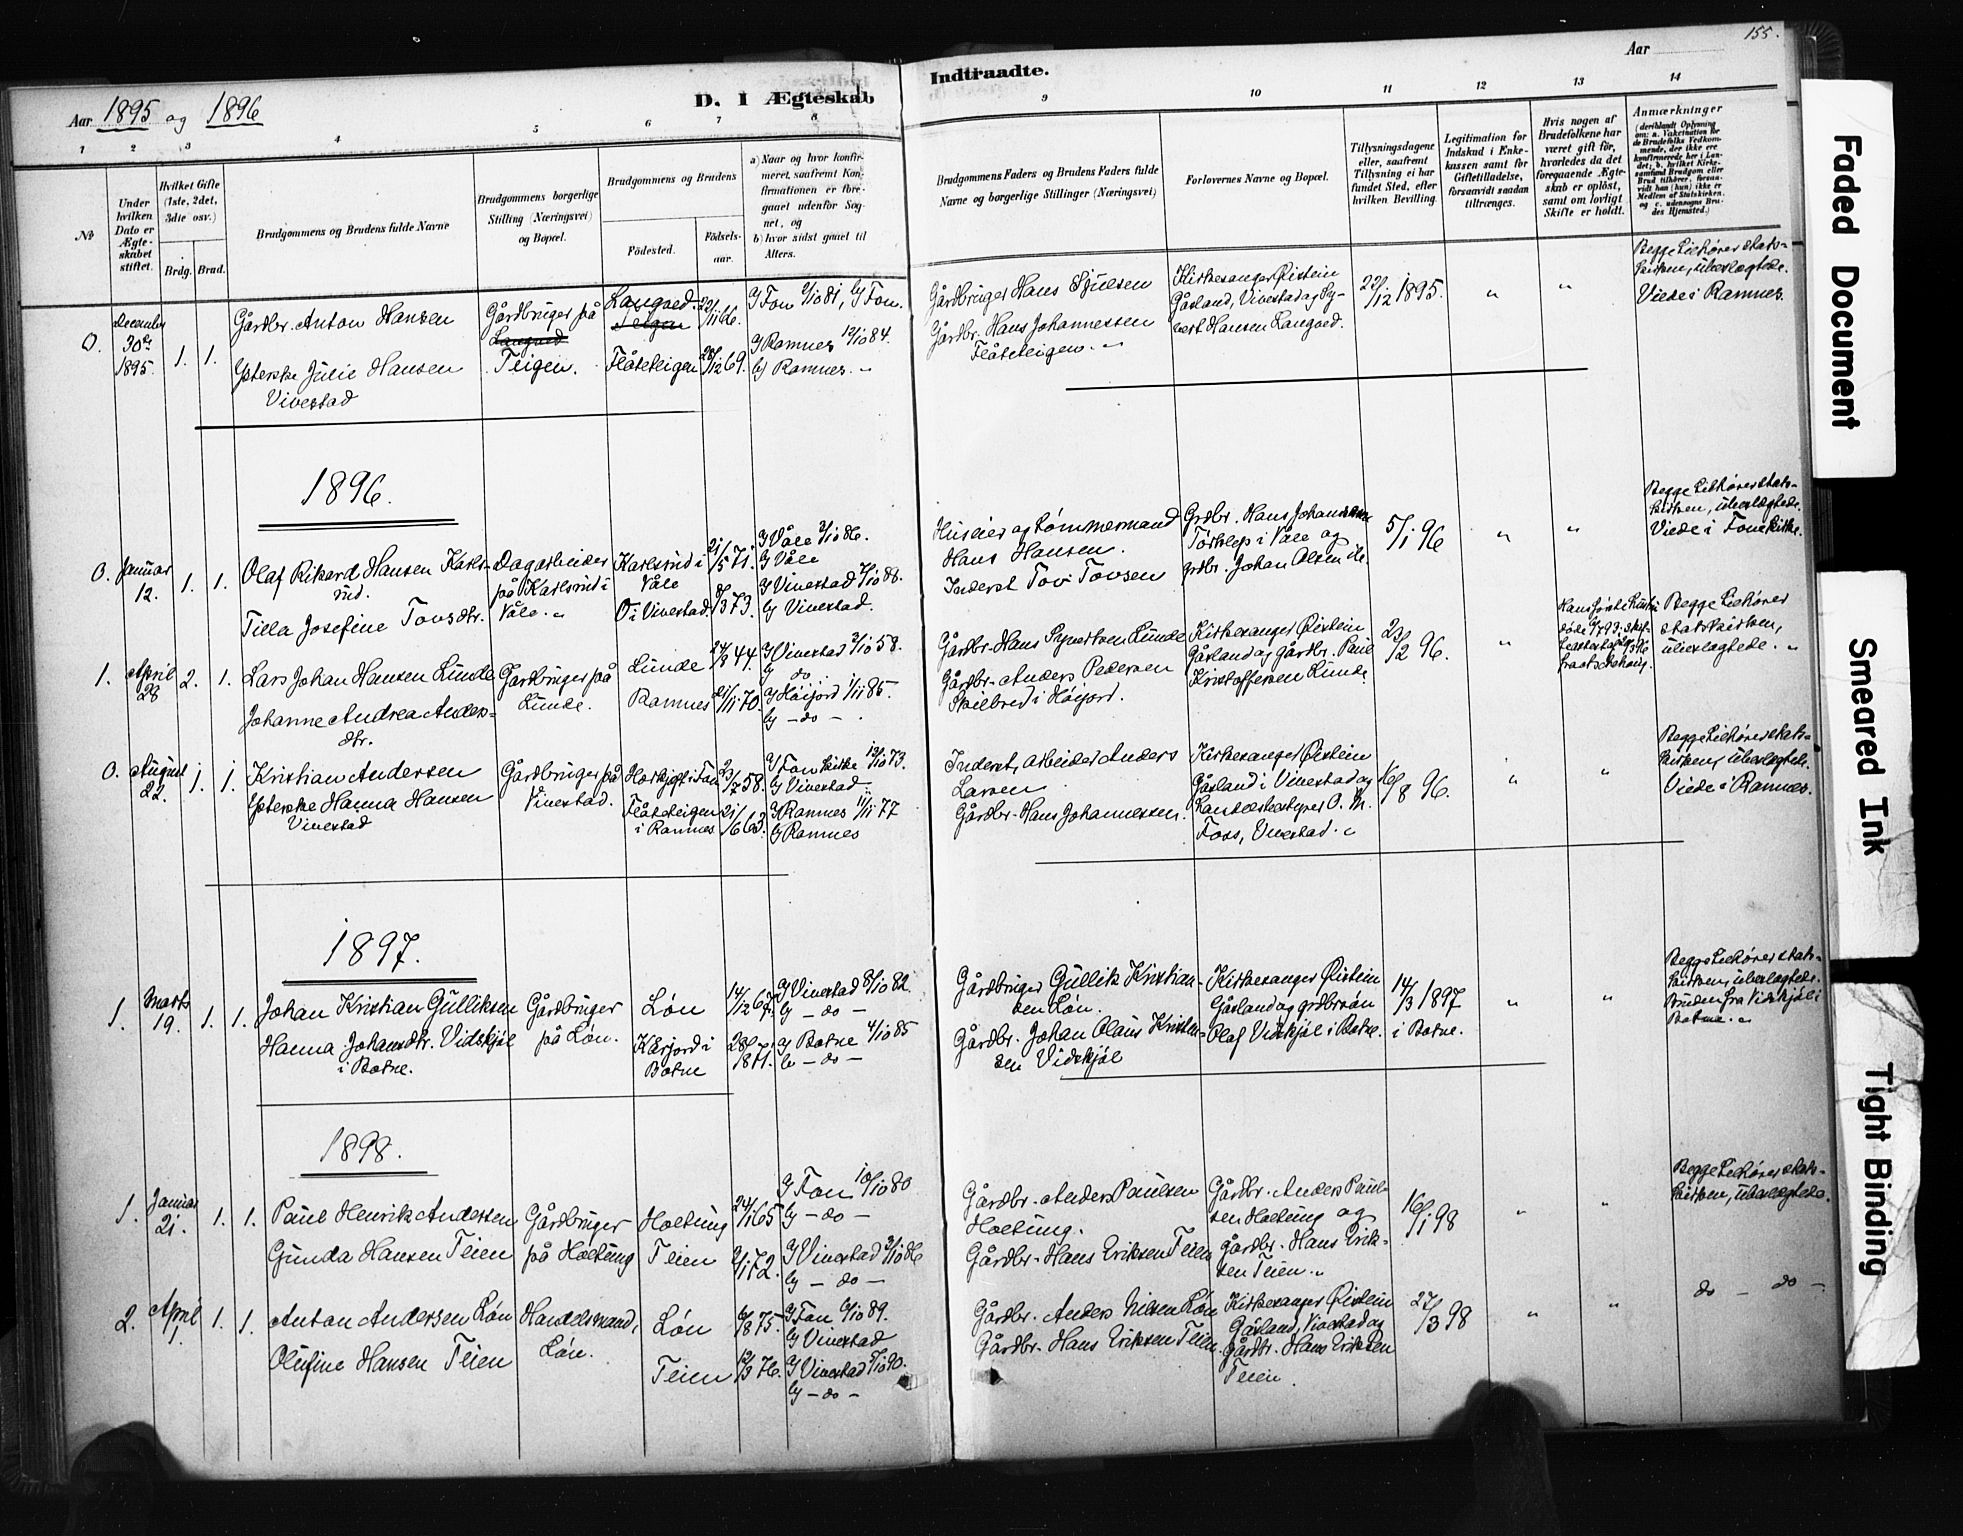 155.
Aar 1895 og 1896
D. I Ægteskab
Indtraadte.
Aar
1 2 3 4 5 6 7 8
9 10 11 12 13 14
No
Under hvilken Dato er Ægteskabet stiftet.
Hvilket Gifte (1ste, 2det, 3die osv.)
Brdg. Brud.
Brudgommens og Brudens fulde Navne
Brudgommens borgerlige Stilling (Næringsvei) og Bopæl.
Brudgommens og Brudens
Fødested.
Fødsels-aar.
a) Naar og hvor konfirmeret, saafremt Konfirmationen er foregaaet udenfor Sognet, og
b) hvor sidst gaaet til Alters.
Brudgommens Faders og Brudens Faders fulde Navne og borgerlige Stillinger (Næringsvei)
Forlovernes Navne og Bopæl.
Tillysningsdagene eller, saafremt Tillysning ei har fundet Sted, efter hvilken Bevilling.
Legitimation for Indskud i Enkekassen samt for Giftetilladelse, forsaavidt saadan tiltrænges.
Hvis nogen af Brudefolkene har været gift før, hvorledes da det foregaaende Ægteskab er opløst, samt om lovligt Skifte er holdt.
Anmærkninger
0. December 30te 1895. 1. 1.
Gårdbr. Anton Hansen
Ytterske Julie Hansen
Vivestad
Gårdbruger på
Langoed
Teigen.
Langoed
Teigen
Flåteteigen
22/11 66.
28/12 69.
G Fon 2/10 81, G Fon.
G Ramnes 12/10 84.
G Ramnes.
Gårdbruger Hans
Gårdbr. Hans Johannessen
Flåteteigen.
Kirkesanger Øistein
Gåsland, Vivestad og
Hansen Langoed.
22/12 1895.
Begge tilhører stats-
kirken, ubeslægtede.
Viede i Ramnes.
1896.
0. Januar 12. 1. 1.
Olaf Rikard Hansen Karls-
rud.
Tilla Josefine Tovsdtr.
Dagarbeider
på Karlsrud i
Våle.
Karlsrud i
Våle
Ø i Vivestad.
21/5 71.
8/3 73.
G Våle 3/10 86.
G Våle
G Vivestad 7/10 88.
G Vivestad.
Huseier og tømmermand
Hans Hansen.
Inderst Tov Tovsen
Grdbr. Hans Johansen
i Våle og
grdbr. Johan Olsen
5/1 96
Begge tilhører stats-
kirken, ubeslægtede.
Viede i Fon kirke.
1. April 28 2. 1.
Lars Johan Hansen Lunde
Johanne Andrea Anders-
dtr.
Gårdbruger på
Lunde.
Lunde
Ramnes
24/8 44.
21/11 70.
G Vivestad 3/10 58.
G do
G Høijord 1/11 85.
G – do –
Gårdbr. Hans Syvertsen Lunde
Gårdbr. Anders Pedersen
i Høijord.
Kirkesanger Øistein
Gåsland og gårdbr. Paul
Kristoffersen Lunde
23/2 96.
Hans første kustru
døde
Begge tilhører
statskirken,
ubeslægtede.
0. August 22. 1. 1.
Kristian Andersen
Ytterske Hanna Hansen
Vivestad
Gårdbruger på
Vivestad.
i Fon
Flåteteigen
i Ramnes
23/7 58.
21/6 63.
G Fon kirke 12/10 73.
G Vivestad.
G Ramnes 11/11 77
G Ramnes
Inderst, arbeider Anders
Larsen
Gårdbr. Hans Johannessen.
Kirkesanger Øistein
Gåsland i Vivestad og
O. M.
Foss, Vivestad.
16/8 96.
Begge tilhører stats-
kirken, ubeslægtede.
Viede i Ramnes.
1897.
1. Marts 19. 1. 1.
Johan Kristian Gulliksen
Hanna Johansdtr. Vidskjøl
i Botne.
Gårdbruger
på Løn.
Løn
Kårjord i
Botne
14/12 67.
G Vivestad 8/10 82.
G – do –
G Botne 4/10 85
G – do –
Gårdbruger Gullik Kristian-
sen Løn.
Gårdbr. Johan Olaus Kristen-
sen Vidskjøl
Kirkesanger Øistein
Gåsland og grdbrsøn
Olaf Vidskjøl i Botne.
14/3 1897
i Botne.
Begge tilhører stats-
kirken, ubeslægtede.
Bruden fra Vidskjøl i
Botne.
1898.
1. Januar 21. 1. 1.
Paul Henrik Andersen
Gunda Hansen Teien
Gårdbruger
på Holtung
Holtung
Teien
24/1 65
2/1 72.
G Fon 10/10 80
G – do –
G Vivestad 3/10 86
G – do –
Gårdbr. Anders Paulsen
Holtung.
Gårdbr. Hans Eriksen Teien
Gårdbr. Anders Paul-
sen Holtung og
gårdbr. Hans Erik-
sen Teien.
16/1 98
Begge tilhører stats-
kirken, ubeslægtede.
2. April 1. 1. 1.
Anton Andersen Løn
Olufine Hansen Teien
Handelsmand,
Løn.
Løn
Teien
6/8 75.
12/3 76.
G Fon 6/10 89.
G Vivestad
G Vivestad 7/10 90.
G – do –
Gårdbr. Anders Nilsen Løn
Gårdbr. Hans Eriksen Teien.
Kirkesanger Øistein
Gåsland, Vivestad og
Gårdbr. Hans Eriksen
Teien.
27/3 98
do – do –
Faded Document
Smeared Ink
Tight Binding